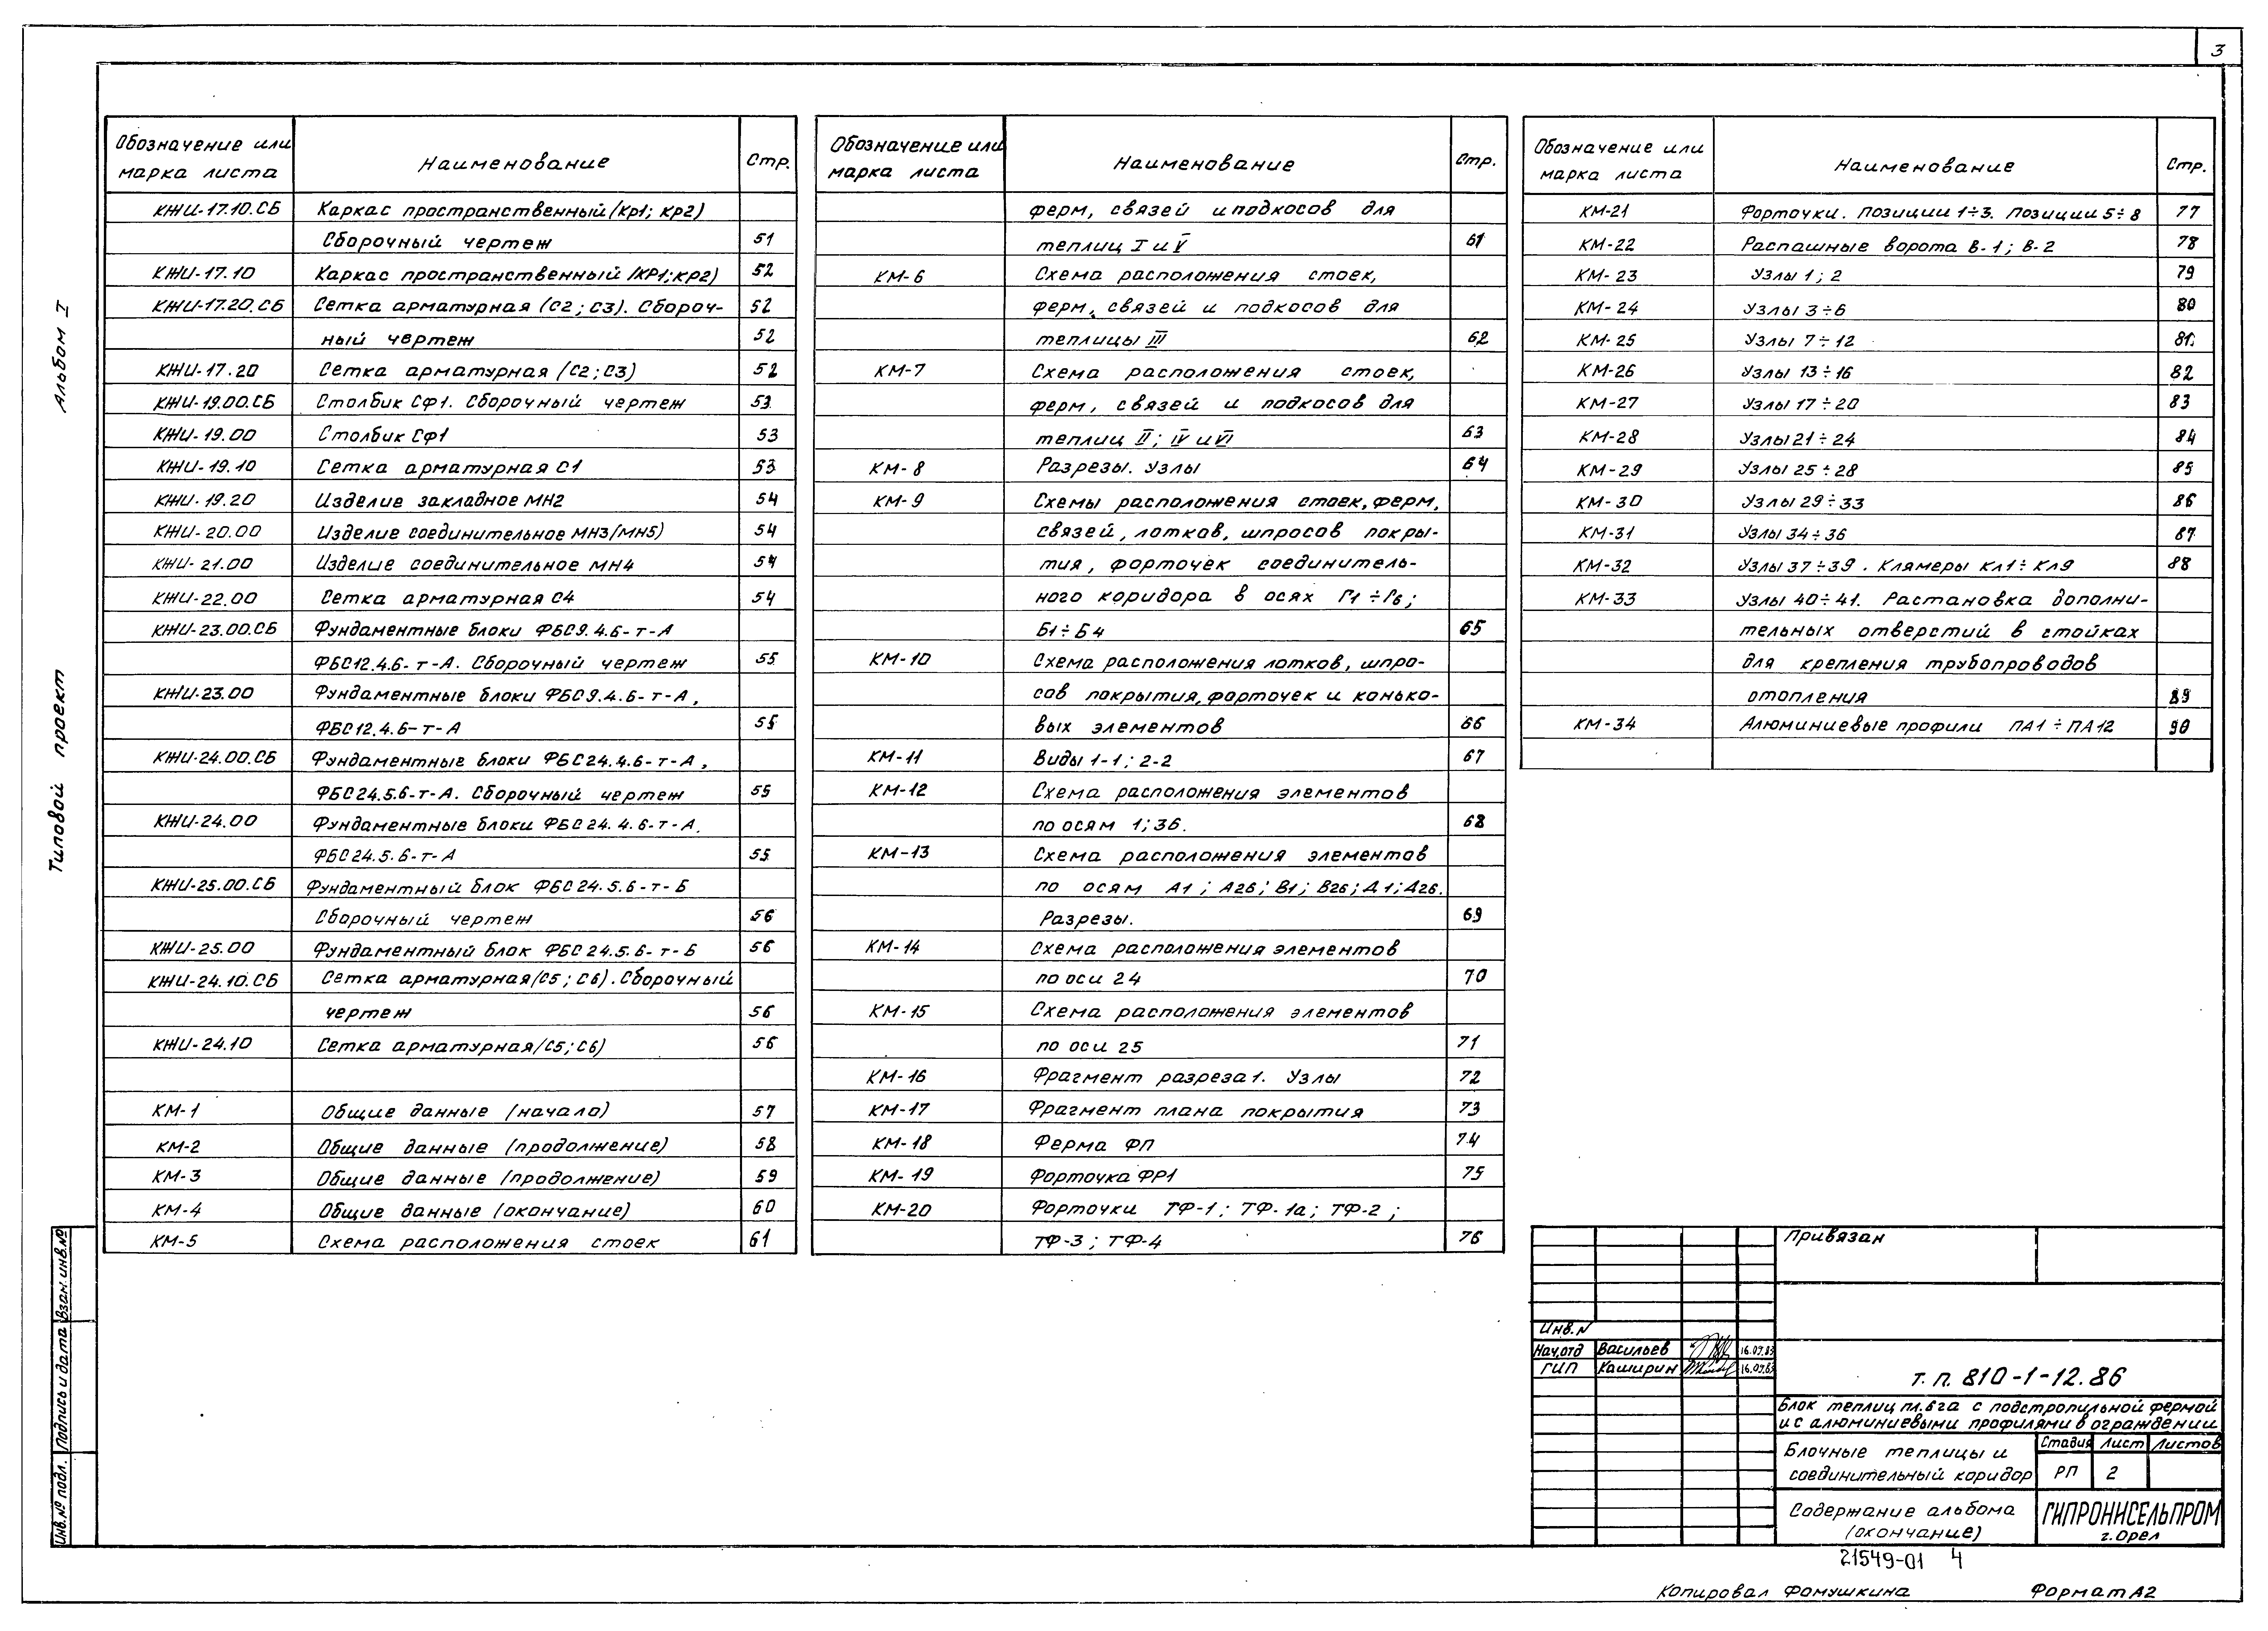 3
Альбом I
Типовой проект
Обозначение или марка листа | Наименование | Стр.
КЖИ-17.10.СБ | Каркас пространственный (Кр1; КР2)
Сборочный чертеж | 51
КЖИ-17.10 | Каркас пространственный (КР1; КР2) | 52
КЖИ-17.20.СБ | Сетка арматурная (С2; С3). Сбороч- | 52
ный чертеж | 52
КЖИ-17.20 | Сетка арматурная (С2; С3) | 52
КЖИ-19.00.СБ | Столбик Сф1. Сборочный чертеж | 53
КЖИ-19.00 | Столбик Сф1 | 53
КЖИ-19.10 | Сетка арматурная С1 | 53
КЖИ-19.20 | Изделие закладное МН2 | 54
КЖИ-20.00 | Изделие соединительное МН3 (МН5) | 54
КЖИ-21.00 | Изделие соединительное МН4 | 54
КЖИ-22.00 | Сетка арматурная С4 | 54
КЖИ-23.00.СБ | Фундаментные блоки ФБС9.4.6-т-А
ФБС12.4.6-т-А. Сборочный чертеж | 55
КЖИ-23.00 | Фундаментные блоки ФБС9.4.6-т-А,
ФБС12.4.6-т-А | 55
КЖИ-24.00.СБ | Фундаментные блоки ФБС24.4.6-т-А,
ФБС24.5.6-т-А. Сборочный чертеж | 55
КЖИ-24.00 | Фундаментные блоки ФБС24.4.6-т-А.
ФБС24.5.6-т-А | 55
КЖИ-25.00.СБ | Фундаментный блок ФБС24.5.6-т-Б
Сборочный чертеж | 56
КЖИ-25.00 | Фундаментный блок ФБС24.5.6-т-Б | 56
КЖИ-24.10.СБ | Сетка арматурная (С5; С6). Сборочный
чертеж | 56
КЖИ-24.10 | Сетка арматурная (С5; С6) | 56
КМ-1 | Общие данные (начало) | 57
КМ-2 | Общие данные (продолжение) | 58
КМ-3 | Общие данные (продолжение) | 59
КМ-4 | Общие данные (окончание) | 60
КМ-5 | Схема расположения стоек | 61
Обозначение или марка листа | Наименование | Стр.
ферм, связей и подкосов для
теплиц I и V | 61
КМ-6 | Схема расположения стоек,
ферм, связей и подкосов для
теплицы III | 62
КМ-7 | Схема расположения стоек,
ферм, связей и подкосов для
теплиц II; IV и VI | 63
КМ-8 | Разрезы. Узлы | 64
КМ-9 | Схемы расположения стоек, ферм,
связей, лотков, шпросов покры-
тия, форточек соединитель-
ного коридора в осях Г1÷Г6;
Б1÷Б4 | 65
КМ-10 | Схема расположения лотков, шпро-
сов покрытия, форточек и конько-
вых элементов | 66
КМ-11 | Виды 1-1; 2-2 | 67
КМ-12 | Схема расположения элементов
по осям 1; 36. | 68
КМ-13 | Схема расположения элементов
по осям А1; А26; В1; В26; Д1; Д26.
Разрезы. | 69
КМ-14 | Схема расположения элементов
по оси 24 | 70
КМ-15 | Схема расположения элементов
по оси 25 | 71
КМ-16 | Фрагмент разреза 1. Узлы | 72
КМ-17 | Фрагмент плана покрытия | 73
КМ-18 | Ферма ФП | 74
КМ-19 | Форточка ФР1 | 75
КМ-20 | Форточки ТФ-1; ТФ-1а; ТФ-2;
ТФ-3; ТФ-4 | 76
Обозначение или марка листа | Наименование | Стр.
КМ-21 | Форточки. Позиции 1÷3. Позиции 5÷8 | 77
КМ-22 | Распашные ворота В-1; В-2 | 78
КМ-23 | Узлы 1; 2 | 79
КМ-24 | Узлы 3÷6 | 80
КМ-25 | Узлы 7÷12 | 81
КМ-26 | Узлы 13÷16 | 82
КМ-27 | Узлы 17÷20 | 83
КМ-28 | Узлы 21÷24 | 84
КМ-29 | Узлы 25÷28 | 85
КМ-30 | Узлы 29÷33 | 86
КМ-31 | Узлы 34÷36 | 87
КМ-32 | Узлы 37÷39. Клямеры Кл1÷Кл9 | 88
КМ-33 | Узлы 40÷41. Растановка дополни-
тельных отверстий в стойках
для крепления трубопроводов
отопления | 89
КМ-34 | Алюминиевые профили ПА1÷ПА12 | 90
Взан. инв.№
Подпись и дата
Инв.№ подл.
Привязан
Инв.N
Нач.отд Васильев 16.09.83
ГИП Каширин 16.09.83
Т. П. 810-1-12.86
Блок теплиц пл.6га с подстропильной фермой
и с алюминиевыми профилями в ограждении
Блочные теплицы и
соединительный коридор
Стадия Лист Листов
РП 2
Содержание альбома
(окончание)
ГИПРОНИСЕЛЬПРОМ
г. Орел
21549-01 4
Копировал Фомушкина Формат А2